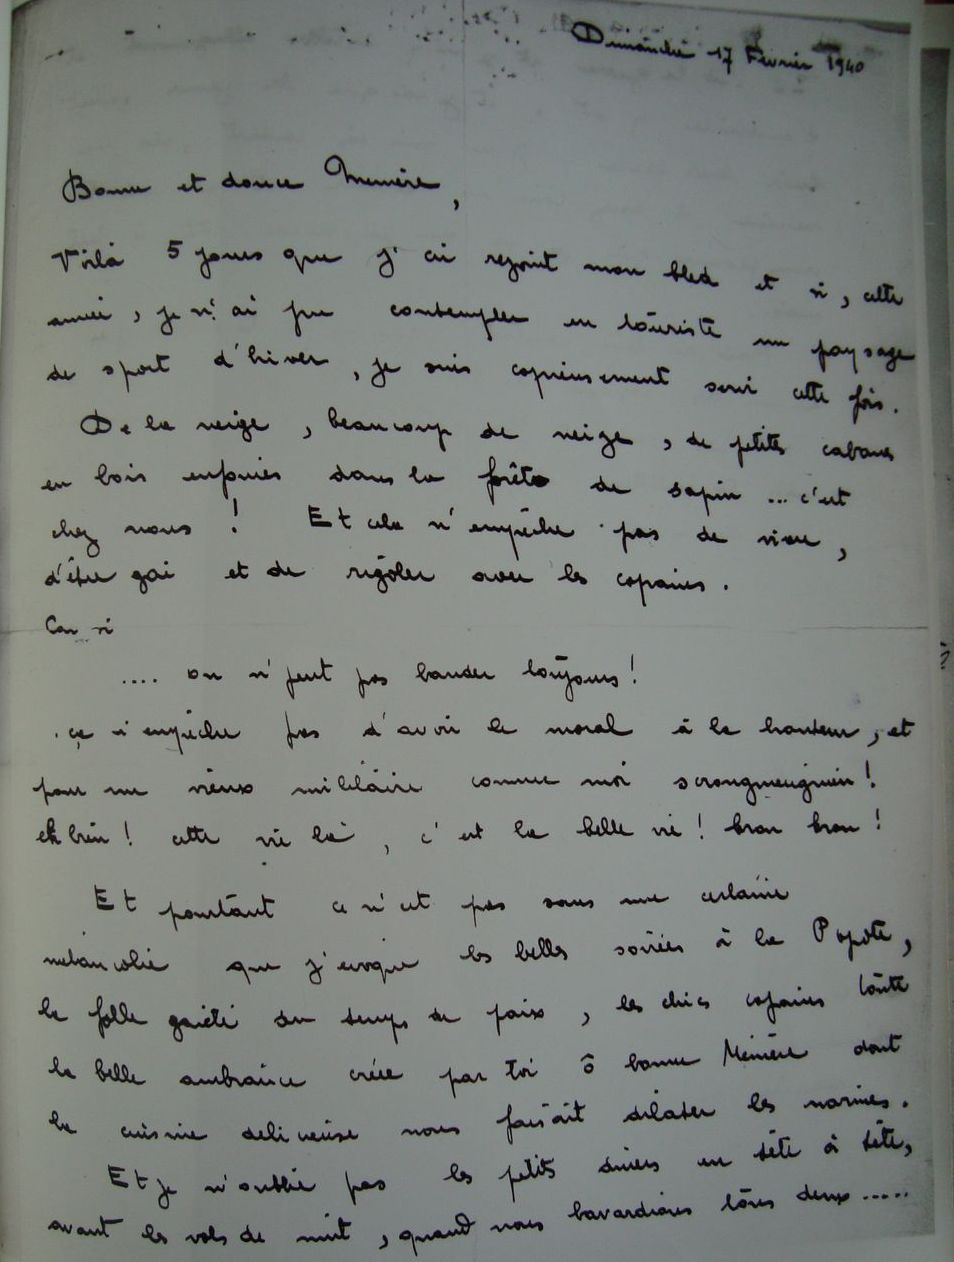 Dimanche 17 Février 1940
Bonne et douce Mémère,
Voilà 5 jours que j'ai rejoint mon bled et si, cette
année, je n'ai pu contempler en touriste un paysage
de sport d'hiver, je suis copieusement servi cette fois.
De la neige, beaucoup de neige, de petites cabanes
en bois enfouies dans la forêt de sapin ... c'est
chez nous ! Et cela n'empêche pas de vivre,
d'être gai et de rigoler avec les copains.
Car si
.... on n'peut pas bander toujours !
ça n'empêche pas d'avoir le moral à la hauteur, et
pour un vieux militaire comme moi scrongneugnieu !
eh bien ! cette vie là, c'est la belle vie ! bron bron !
Et pourtant ce n'est pas sans une certaine
mélancolie que j'évoque les belles soirées à la Popote,
la folle gaieté du temps de paix, les chics copains toute
la belle ambiance créée par toi ô bonne Mémère dont
la cuisine délicieuse nous faisait dilater les narines.
Et je n'oublie pas les petits diners en tête à tête,
avant les vols de nuit, quand nous bavardions tous deux .....